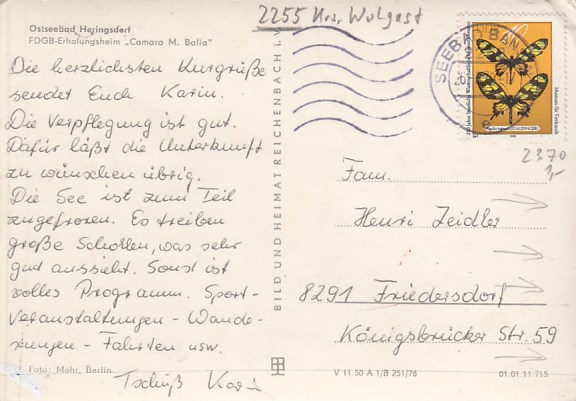 2255 Krs. Wolgast
Ostseebad Heringsdorf
FDGB-Erholungsheim „Camara M. Balia"
Die herzlichsten Kurgrüße
sendet Euch Karin.
Die Verpflegung ist gut.
Dafür läßt die Unterkunft
zu wünschen übrig.
Die See ist zum Teil
zugefroren. Es treiben
große Schollen, was sehr
gut aussieht. Sonst ist
volles Programm. Sport-
veranstaltungen - Wande-
rungen - Fahrten usw.
Tschüß Karin
Foto: Mohr, Berlin
BILD UND HEIMAT REICHENBACH I. V.
SEEBAD BANSIN
10
Museum für Tierkunde
2370
1,-
Fam.
Henri Zeidler
8291 Friedersdorf
Königsbrücker Str. 59
V 11 50 A 1/B 251/76
01 01 11 715